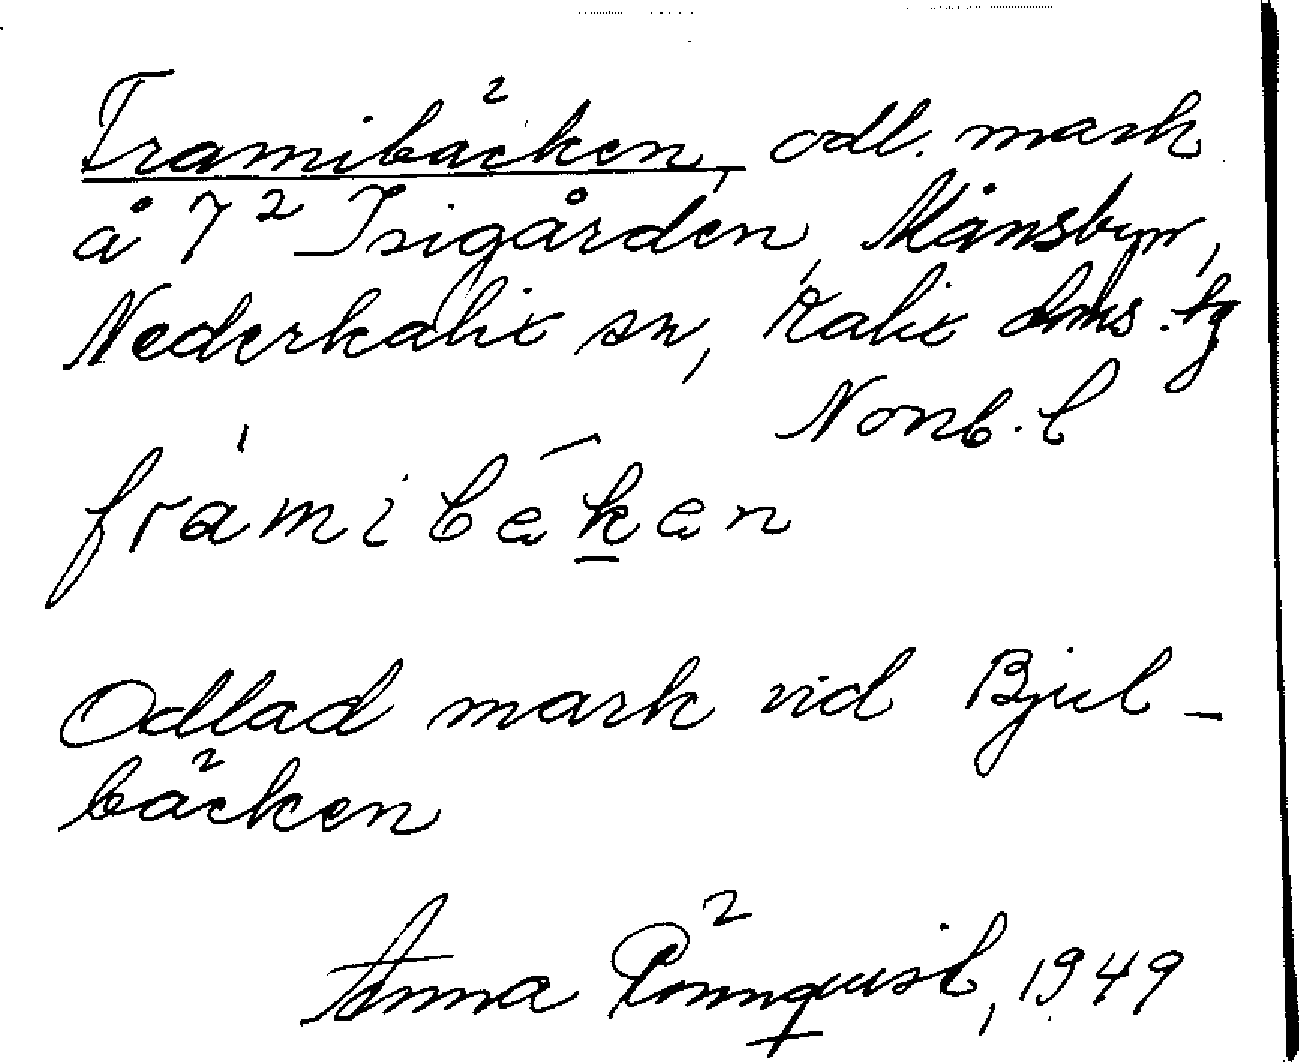 Framibäcken, odl. mark
å 7² Isigården, Månsbyn,
Nederkalix sn, Kalix dms. tg
Norrb. l
framibäken
Odlad mark vid Bjul-
bäcken
Anna Rönnquist, 1949